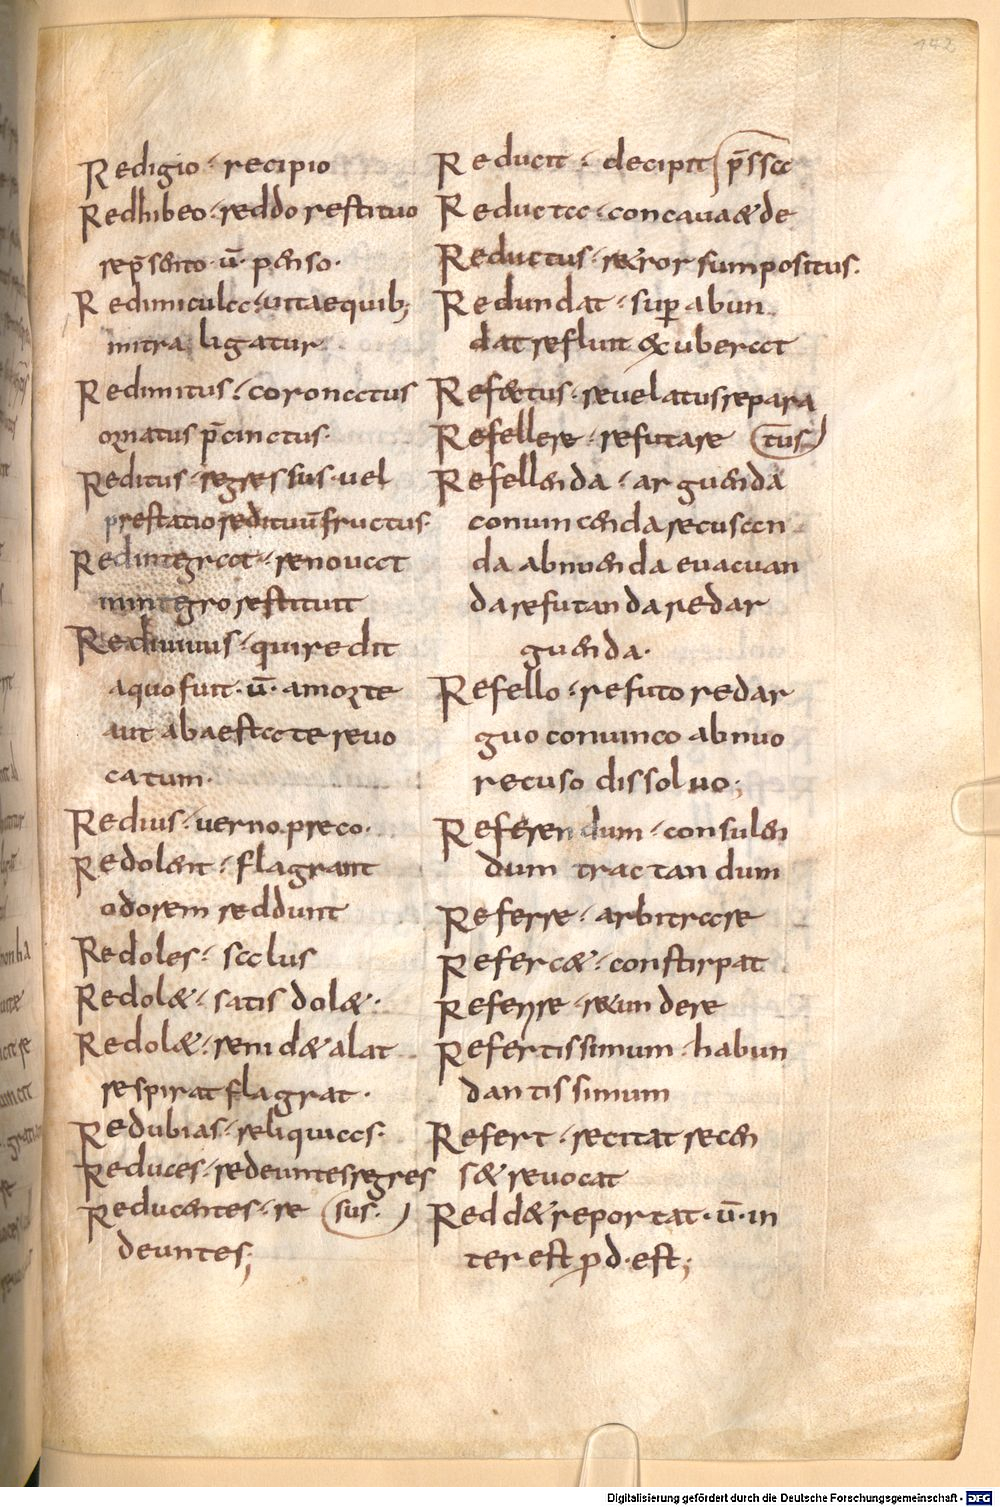 142
Redigio · recipio
Redhibeo · reddo restituo
rep̄sento · ū · penso ·
Redimicula · uittae quib;
mitra ligatur
Redimitus · coronatus
ornatus p̄cinctus ·
Reditus · regressus · uel
prestatio redituū fructus ·
Redintegrat · renouat
in integro restituit
Rediuiuus · qui redit
a quo fuit · ū · a morte
aut ab aestate reuo
catum ·
Redius · uerno preco ·
Redolent · flagrant
odorem reddunt
Redoles · saelus
Redol& · satis dol& ·
Redol& · renid& alat
respirat flagrat ·
Redubias · reliquias ·
Reduces · redeuntes regres
sus ·
Reducentes · re
deuntes;
Reducit · decipit p̄ssa
Reducta · concaua & de
Reductus · r&rorsum positus ·
Redundat · sup abun
dat refluit exuberat
Ref&tus · reuelatus repara
tus
Refellere · refutare
Refellenda · arguenda
conuincenda recusan
da abnuenda euacuan
da refutanda redar
guenda ·
Refello · refuto redar
guo conuinco abnuo
recuso dissoluo;
Referendum · consulen
dum tractandum
Referre · arbitrare
Referc& · constirpat
Referre · r&undere
Refertissimum · habun
dantissimum
Refert · recitat recen
s& reuocat
Redd& reportat · ū · in
ter est pd · est;
Digitalisierung gefördert durch die Deutsche Forschungsgemeinschaft - DFG